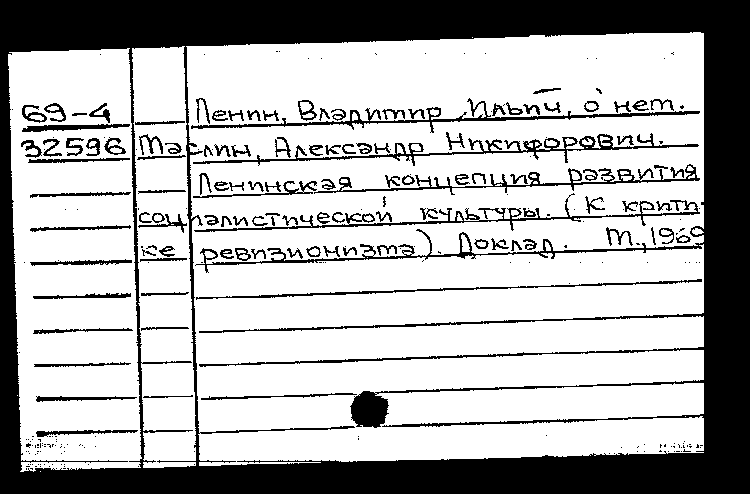 69-4 Ленин, Владимир Ильич, о нем.
32596 Маслин, Александр Никифорович.
Ленинская концепция развития
социалистической культуры. (К крити-
ке ревизионизма). Доклад. М., 1969